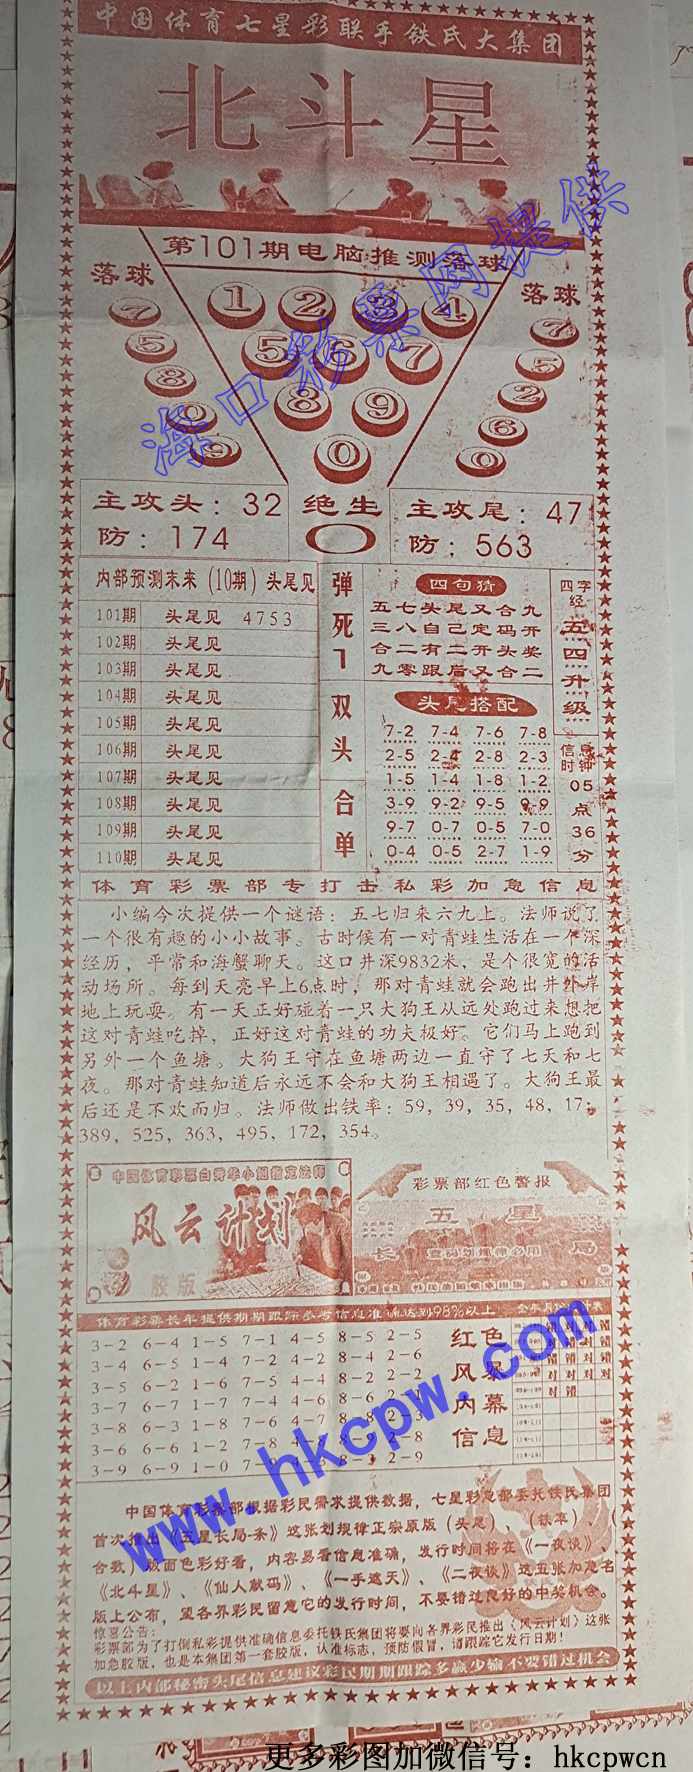 中国体育七星彩联手铁氏大集团
北斗星
第101期电脑推测落球
落球
7
5
8
0
9
1 2 3 4
5 6 7
8 9
0
落球
7
5
2
6
0
海口彩票网提供
主攻头：32
防：174
绝生
0
主攻尾：47
防：563
内部预测未来(10期)头尾见
101期 头尾见 4753
102期 头尾见
103期 头尾见
104期 头尾见
105期 头尾见
106期 头尾见
107期 头尾见
108期 头尾见
109期 头尾见
110期 头尾见
弹死7
双头
合单
四句猜
五七头尾又合九
三八自己定码开
合二有二开头奖
九零跟后又合二
头尾搭配
7-2 7-4 7-6 7-8
2-5 2-4 2-8 2-3
1-5 1-4 1-8 1-2
3-9 9-2 9-5 9-9
9-7 0-7 0-5 7-0
0-4 0-5 2-7 1-9
四字经
五四升级
信息时钟
05
点
36
分
体育彩票部专打击私彩加急信息
小编今次提供一个谜语：五七归来六九上。法师说了
一个很有趣的小小故事。古时候有一对青蛙生活在一个深
经历，平常和海蟹聊天。这口井深9832米，是个很宽的活
动场所。每到天亮早上6点时，那对青蛙就会跑出井外岸
地上玩耍。有一天正好碰着一只大狗王从远处跑过来想把
这对青蛙吃掉，正好这对青蛙的功夫极好。它们马上跑到
另外一个鱼塘。大狗王守在鱼塘两边一直守了七天和七
夜。那对青蛙知道后永远不会和大狗王相遇了。大狗王最
后还是不欢而归。法师做出铁率：59，39，35，48，17；
389，525，363，495，172，354。
风云计划
胶版
彩票部红色警报
五星
长 局
体育彩票长年提供期期跟踪参考信息准确达到98%以上
3-2 6-4 1-5 7-1 4-5 8-5 2-5
3-4 6-5 1-4 7-2 4-2 8-4 2-6
3-5 6-2 1-6 7-5 4-8 8-2 2-2
3-7 6-7 1-7 7-4 4-6 8-6 2-
3-8 6-3 1-8 7-6 4-7 8-8 2-
3-6 6-6 1-2 7-8 4- -8
3-9 6-9 1-0 7- 8- 2-9
红色
风暴
内幕
信息
www.hkcpw.com
中国体育彩票部根据彩民需求提供数据，七星彩总部委托铁氏集团
首次推出《五星长局-条》这张划规律正宗原版（头尾）、（铁率）、（
合数）版面色彩好看，内容易看信息准确，发行时间将在《一夜谈》、
《北斗星》、《仙人献码》、《一手遮天》、《二夜谈》这五张加急名
版上公布，望各界彩民留意它的发行时间，不要错过良好的中奖机会。
惊喜公告：
彩票部为了打倒私彩提供准确信息委托铁氏集团将要向各界彩民推出《风云计划》这张
加急胶版，也是本集团第一套胶版，认准标志，预防假冒，请跟踪它发行日期！
以上内部秘密头尾信息建议彩民期期跟踪多赢少输不要错过机会
更多彩图加微信号：hkcpwcn